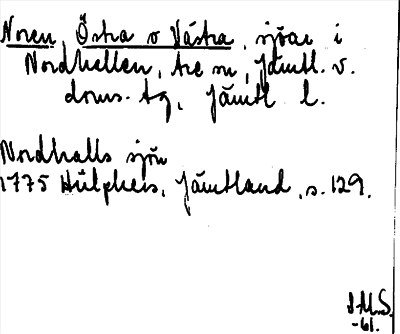 Noren, Östra o Västra, sjöar i
Nordhallen, Åre sn, Jämtl. v.
doms. tg, Jämtl l.
Nordhalls sjön
1775 Hülphers, Jämtland, s. 129.
-61.